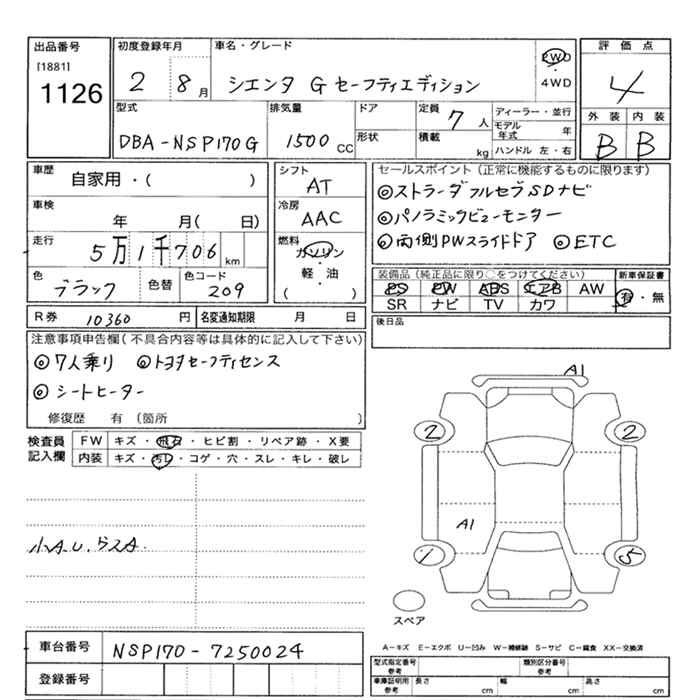 出品番号
[1881]
1126
初度登録年月
2 8月
車名・グレード
シエンタ G セーフティエディション
2WD
・
4WD
評価点
4
外装 内装
B B
型式
DBA-NSP170G
排気量
1500 CC
ドア
形状
定員 7 人
積載 kg
ディーラー・並行
モデル年式 年
ハンドル 左・右
車歴
自家用・( )
車検
年 月( 日)
走行
5万1千706km
色
ブラック
色替
色コード
209
シフト
AT
冷房
AAC
燃料
ガソリン
・
軽・油
( )
セールスポイント(正常に機能するものに限ります)
◎ストラーダフルセグSDナビ
◎パノラミックビューモニター
◎両側PWスライドドア ◎ETC
装備品(純正品に限り○をつけてください)
PS PW ABS エアB AW
SR ナビ TV カワ
新車保証書
有・無
R券 10360 円
名変通知期限 月 日
後日品
注意事項申告欄(不具合内容等は具体的に記入して下さい)
◎7人乗り ◎トヨタセーフティセンス
◎シートヒーター
修復歴 有 (箇所 )
検査員
記入欄
FW キズ・飛石・ヒビ割・リペア跡・X要
内装 キズ・汚レ・コゲ・穴・スレ・キレ・破レ
小A.U.
A1
2 2
A1
1 5
スペア
A-キズ E-エクボ U-凹み W-補修跡 S-サビ C-腐食 XX-交換済
車台番号 NSP170-7250024
登録番号
型式指定番号
参考
類別区分番号
参考
車庫証明用
参考
長さ cm 幅 cm 高さ cm